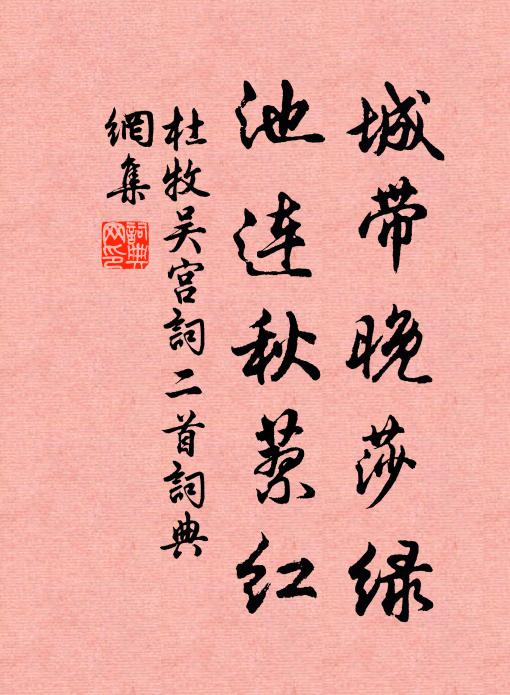 城带晚莎绿
池连秋蓼红
杜牧吴宫詞二首詞典
網集
詞典
网印